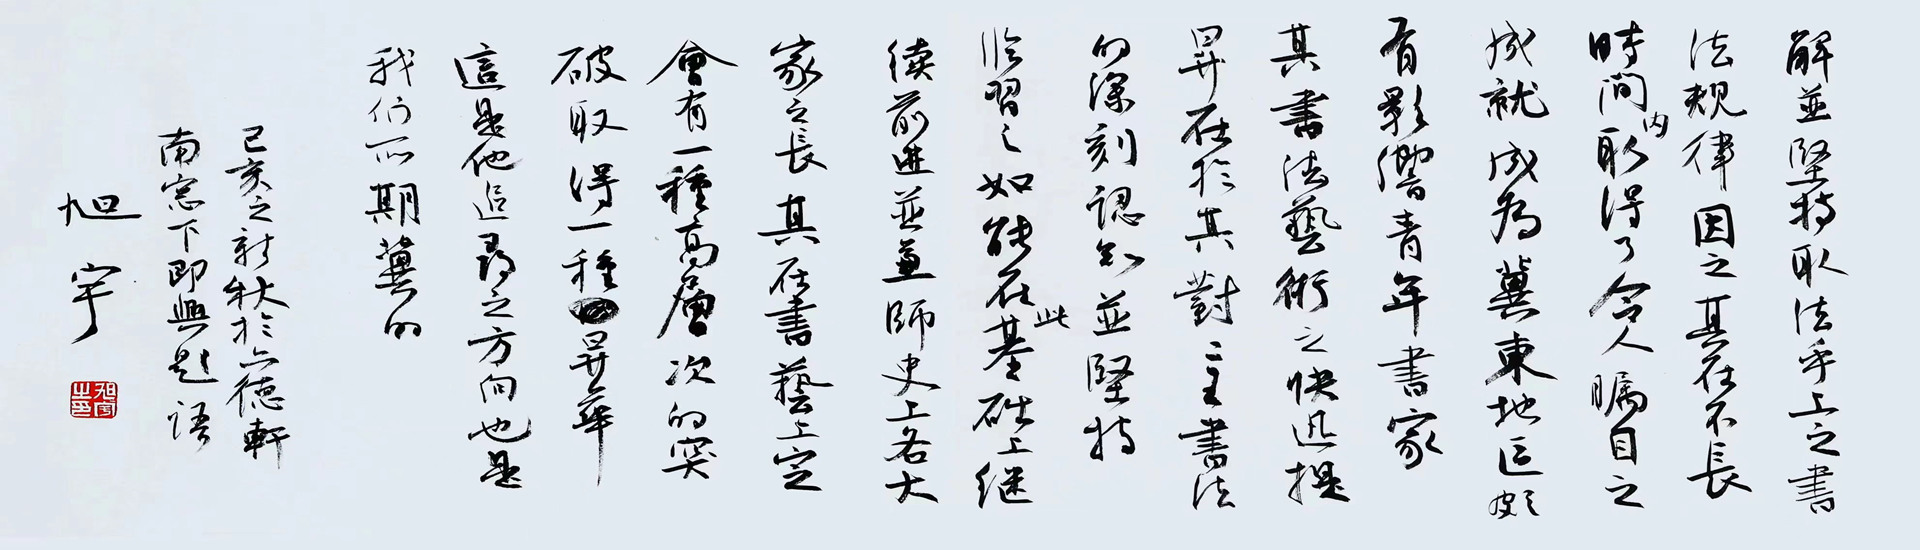 解並堅持取法乎上之書
法規律因之其在不長
時間内取得了令人矚目之
成就成為冀東地區頗
有影響青年書家
其書法藝術之快迅提
昇在於其對二王書法
的深刻認知並堅持
臨習之如能在此基礎上继
續前進並兼師史上各大
家之長其在書藝上定
會有一種高層次的突
破取得一種昇華
這是他追尋之方向也是
我们所期冀的
己亥之新秋於六德軒
南窓下即興題語
旭宇